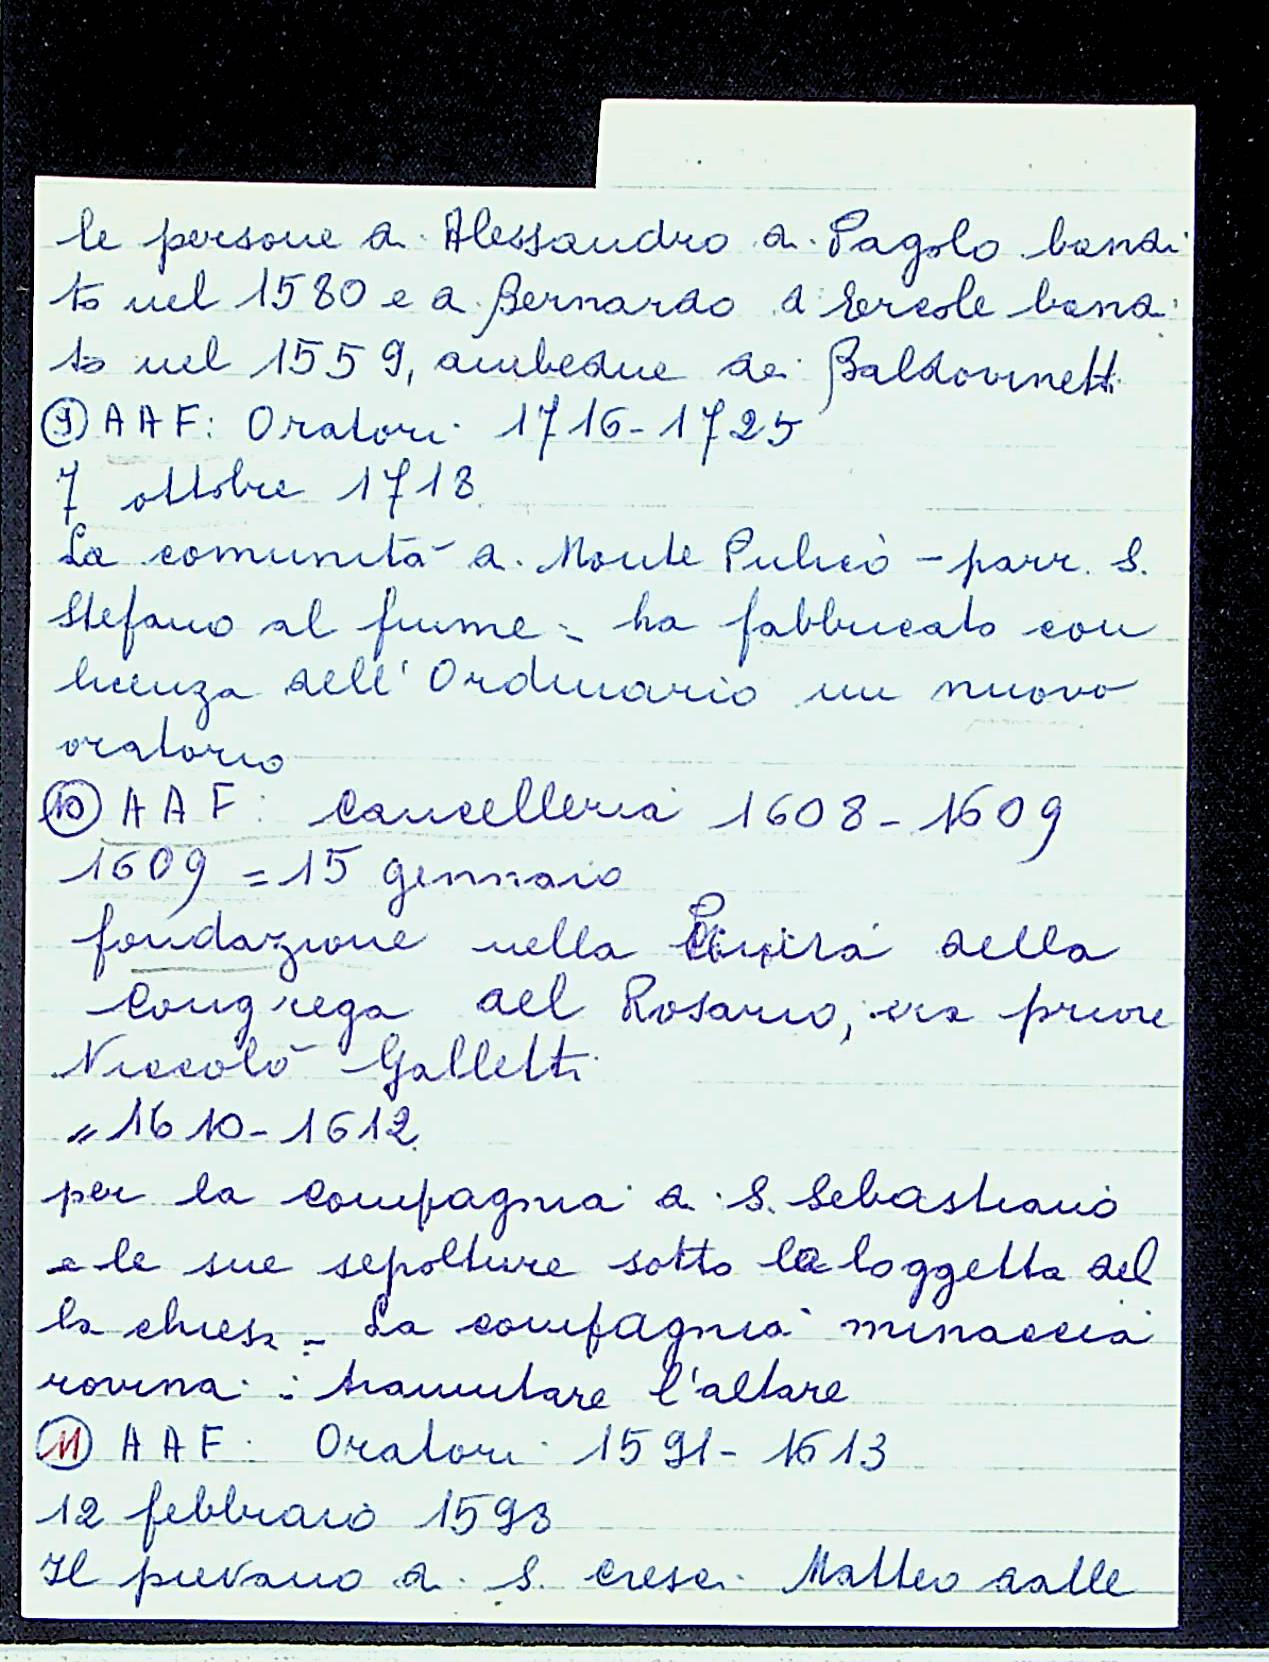 le persone di Alessandro di Pagolo bandi
to nel 1580 e di Bernardo d'Ercole bandi
to nel 1559, ambedue dei Baldovinetti
9) AAF: Oratori 1716-1725
7 ottobre 1718
La comunità di Monte Pulico - parr. S.
Stefano al fiume - ha fabbricato con
licenza dell'Ordinario un nuovo
oratorio
10) AAF: Cancelleria 1608-1609
1609 = 15 gennaio
fondazione nella della
Congrega del Rosario, era priore
Niccolò Galletti
" 1610-1612
per la compagnia di S. Sebastiano
e le sue sepolture sotto la loggetta del
la chiesa - La compagnia minaccia
rovina: tramutare l'altare
11) AAF: Oratori 1591-1613
12 febbraio 1593
Il pievano di S. Cresci Matteo dalle